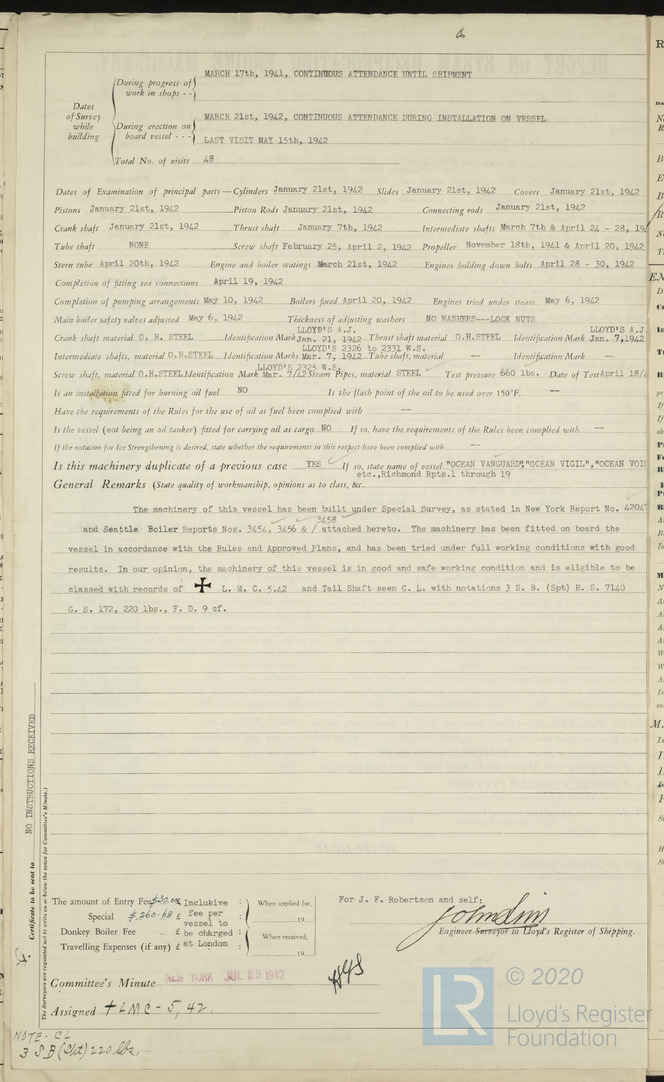 6
Dates of Survey while building
During progress of work in shops - -
MARCH 17th, 1941, CONTINUOUS ATTENDANCE UNTIL SHIPMENT
During erection on board vessel - - -
MARCH 21st, 1942, CONTINUOUS ATTENDANCE DURING INSTALLATION ON VESSEL
LAST VISIT MAY 15th, 1942
Total No. of visits 48
Dates of Examination of principal parts—Cylinders January 21st, 1942 Slides January 21st, 1942 Covers January 21st, 1942
Pistons January 21st, 1942 Piston Rods January 21st, 1942 Connecting rods January 21st, 1942
Crank shaft January 21st, 1942 Thrust shaft January 7th, 1942 Intermediate shafts March 7th & April 24 - 28, 19
Tube shaft NONE Screw shaft February 25, April 2, 1942 Propeller November 18th, 1941 & April 20, 1942
Stern tube April 20th, 1942 Engine and boiler seatings March 21st, 1942 Engines holding down bolts April 28 - 30, 1942
Completion of fitting sea connections April 19, 1942
Completion of pumping arrangements May 10, 1942 Boilers fixed April 20, 1942 Engines tried under steam May 6, 1942
Main boiler safety valves adjusted May 6, 1942 Thickness of adjusting washers NO WASHERS---LOCK NUTS
LLOYD'S A.J. LLOYD'S A.J.
Crank shaft material O. H. STEEL Identification Mark Jan. 21, 1942 Thrust shaft material O.H.STEEL Identification Mark Jan. 7,1942
LLOYD'S 2326 to 2331 W.S.
Intermediate shafts, material O.H.STEEL Identification Marks Mar. 7, 1942 Tube shaft, material -- Identification Mark --
LLOYD'S 2325 W.S.
Screw shaft, material O.H.STEEL Identification Mark Mar. 7/42 Steam Pipes, material STEEL Test pressure 660 lbs. Date of Test April 18/
Is an installation fitted for burning oil fuel NO Is the flash point of the oil to be used over 150°F. --
Have the requirements of the Rules for the use of oil as fuel been complied with --
Is the vessel (not being an oil tanker) fitted for carrying oil as cargo NO If so, have the requirements of the Rules been complied with --
If the notation for Ice Strengthening is desired, state whether the requirements in this respect have been complied with --
Is this machinery duplicate of a previous case YES If so, state name of vessel "OCEAN VANGUARD","OCEAN VIGIL","OCEAN VOIC
etc.,Richmond Rpts.1 through 19
General Remarks (State quality of workmanship, opinions as to class, &c.
The machinery of this vessel has been built under Special Survey, as stated in New York Report No. 4204
3458
and Seattle Boiler Reports Nos. 3454, 3456 & / attached hereto. The machinery has been fitted on board the
vessel in accordance with the Rules and Approved Plans, and has been tried under full working conditions with good
results. In our opinion, the machinery of this vessel is in good and safe working condition and is eligible to be
classed with records of ✠ L. M. C. 5.42 and Tail Shaft seen C. L. with notations 3 S. B. (Spt) H. S. 7140
G. S. 172, 220 lbs., F. D. 9 cf.
NO INSTRUCTIONS RECEIVED
Certificate to be sent to
(The Surveyors are requested not to write on or below the space for Committee's Minute.)
The amount of Entry Fee
Special $260.68 £
Donkey Boiler Fee ... £
Travelling Expenses (if any) £
Inclusive fee per vessel to be charged at London
When applied for,
19
When received,
19
For J. F. Robertson and self:
John Sim
Engineer Surveyor to Lloyd's Register of Shipping.
Committee's Minute NEW YORK JUL 29 1942
Assigned + LMC - 5, 42.
NOTE - CL
3 S B (Spt) 220 lbs.
© 2020
LR
Lloyd's Register
Foundation